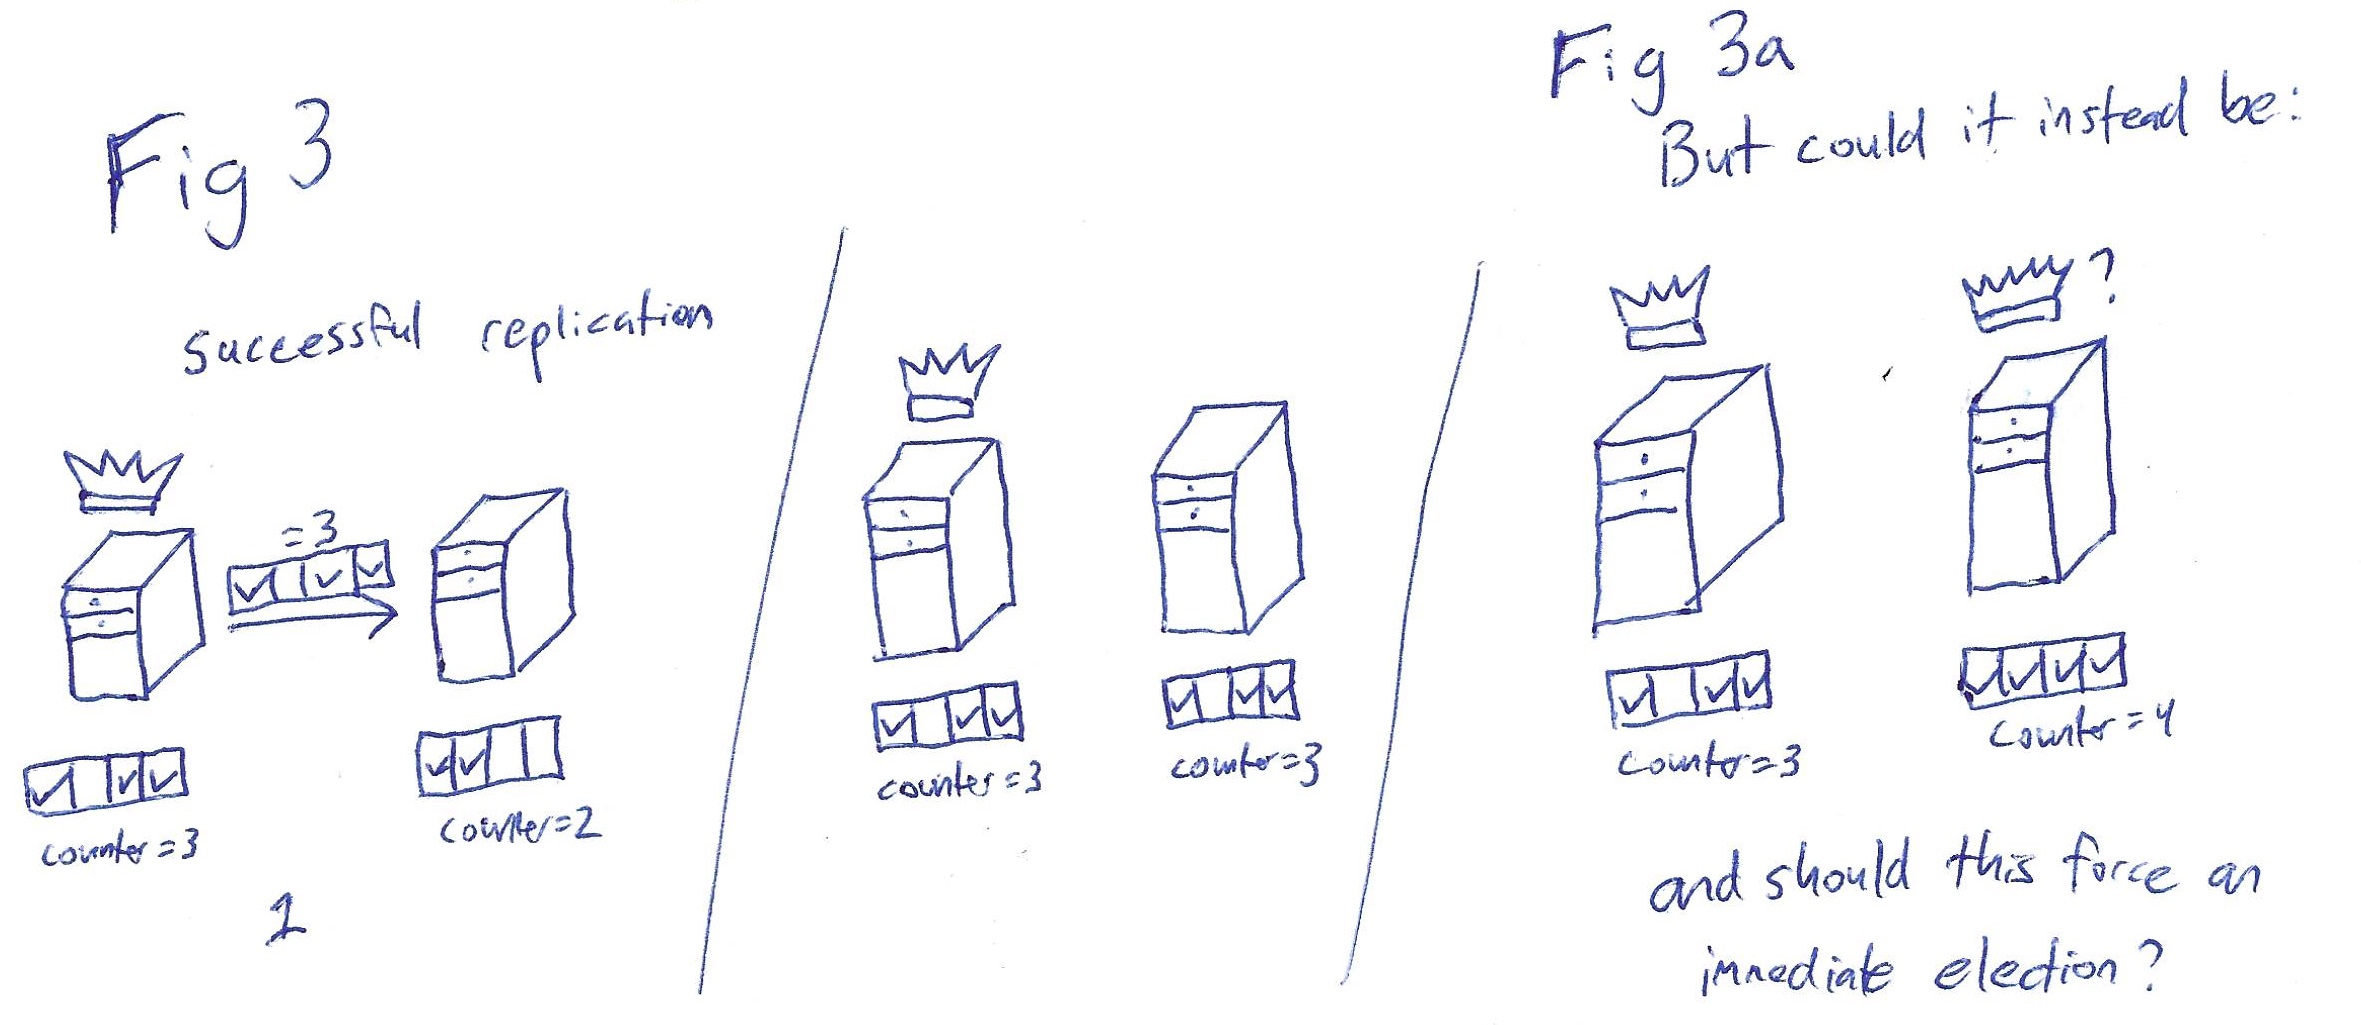 Fig 3
successful replication
=3
counter=3
counter=2
1
counter=3
counter=3
Fig 3a
But could it instead be:
?
counter=3
counter=4
and should this force an
immediate election?